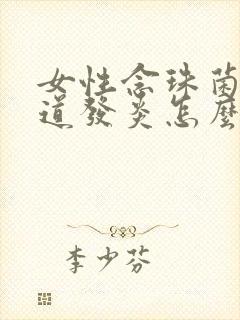 女性念珠菌
道發炎怎麼
李少芬